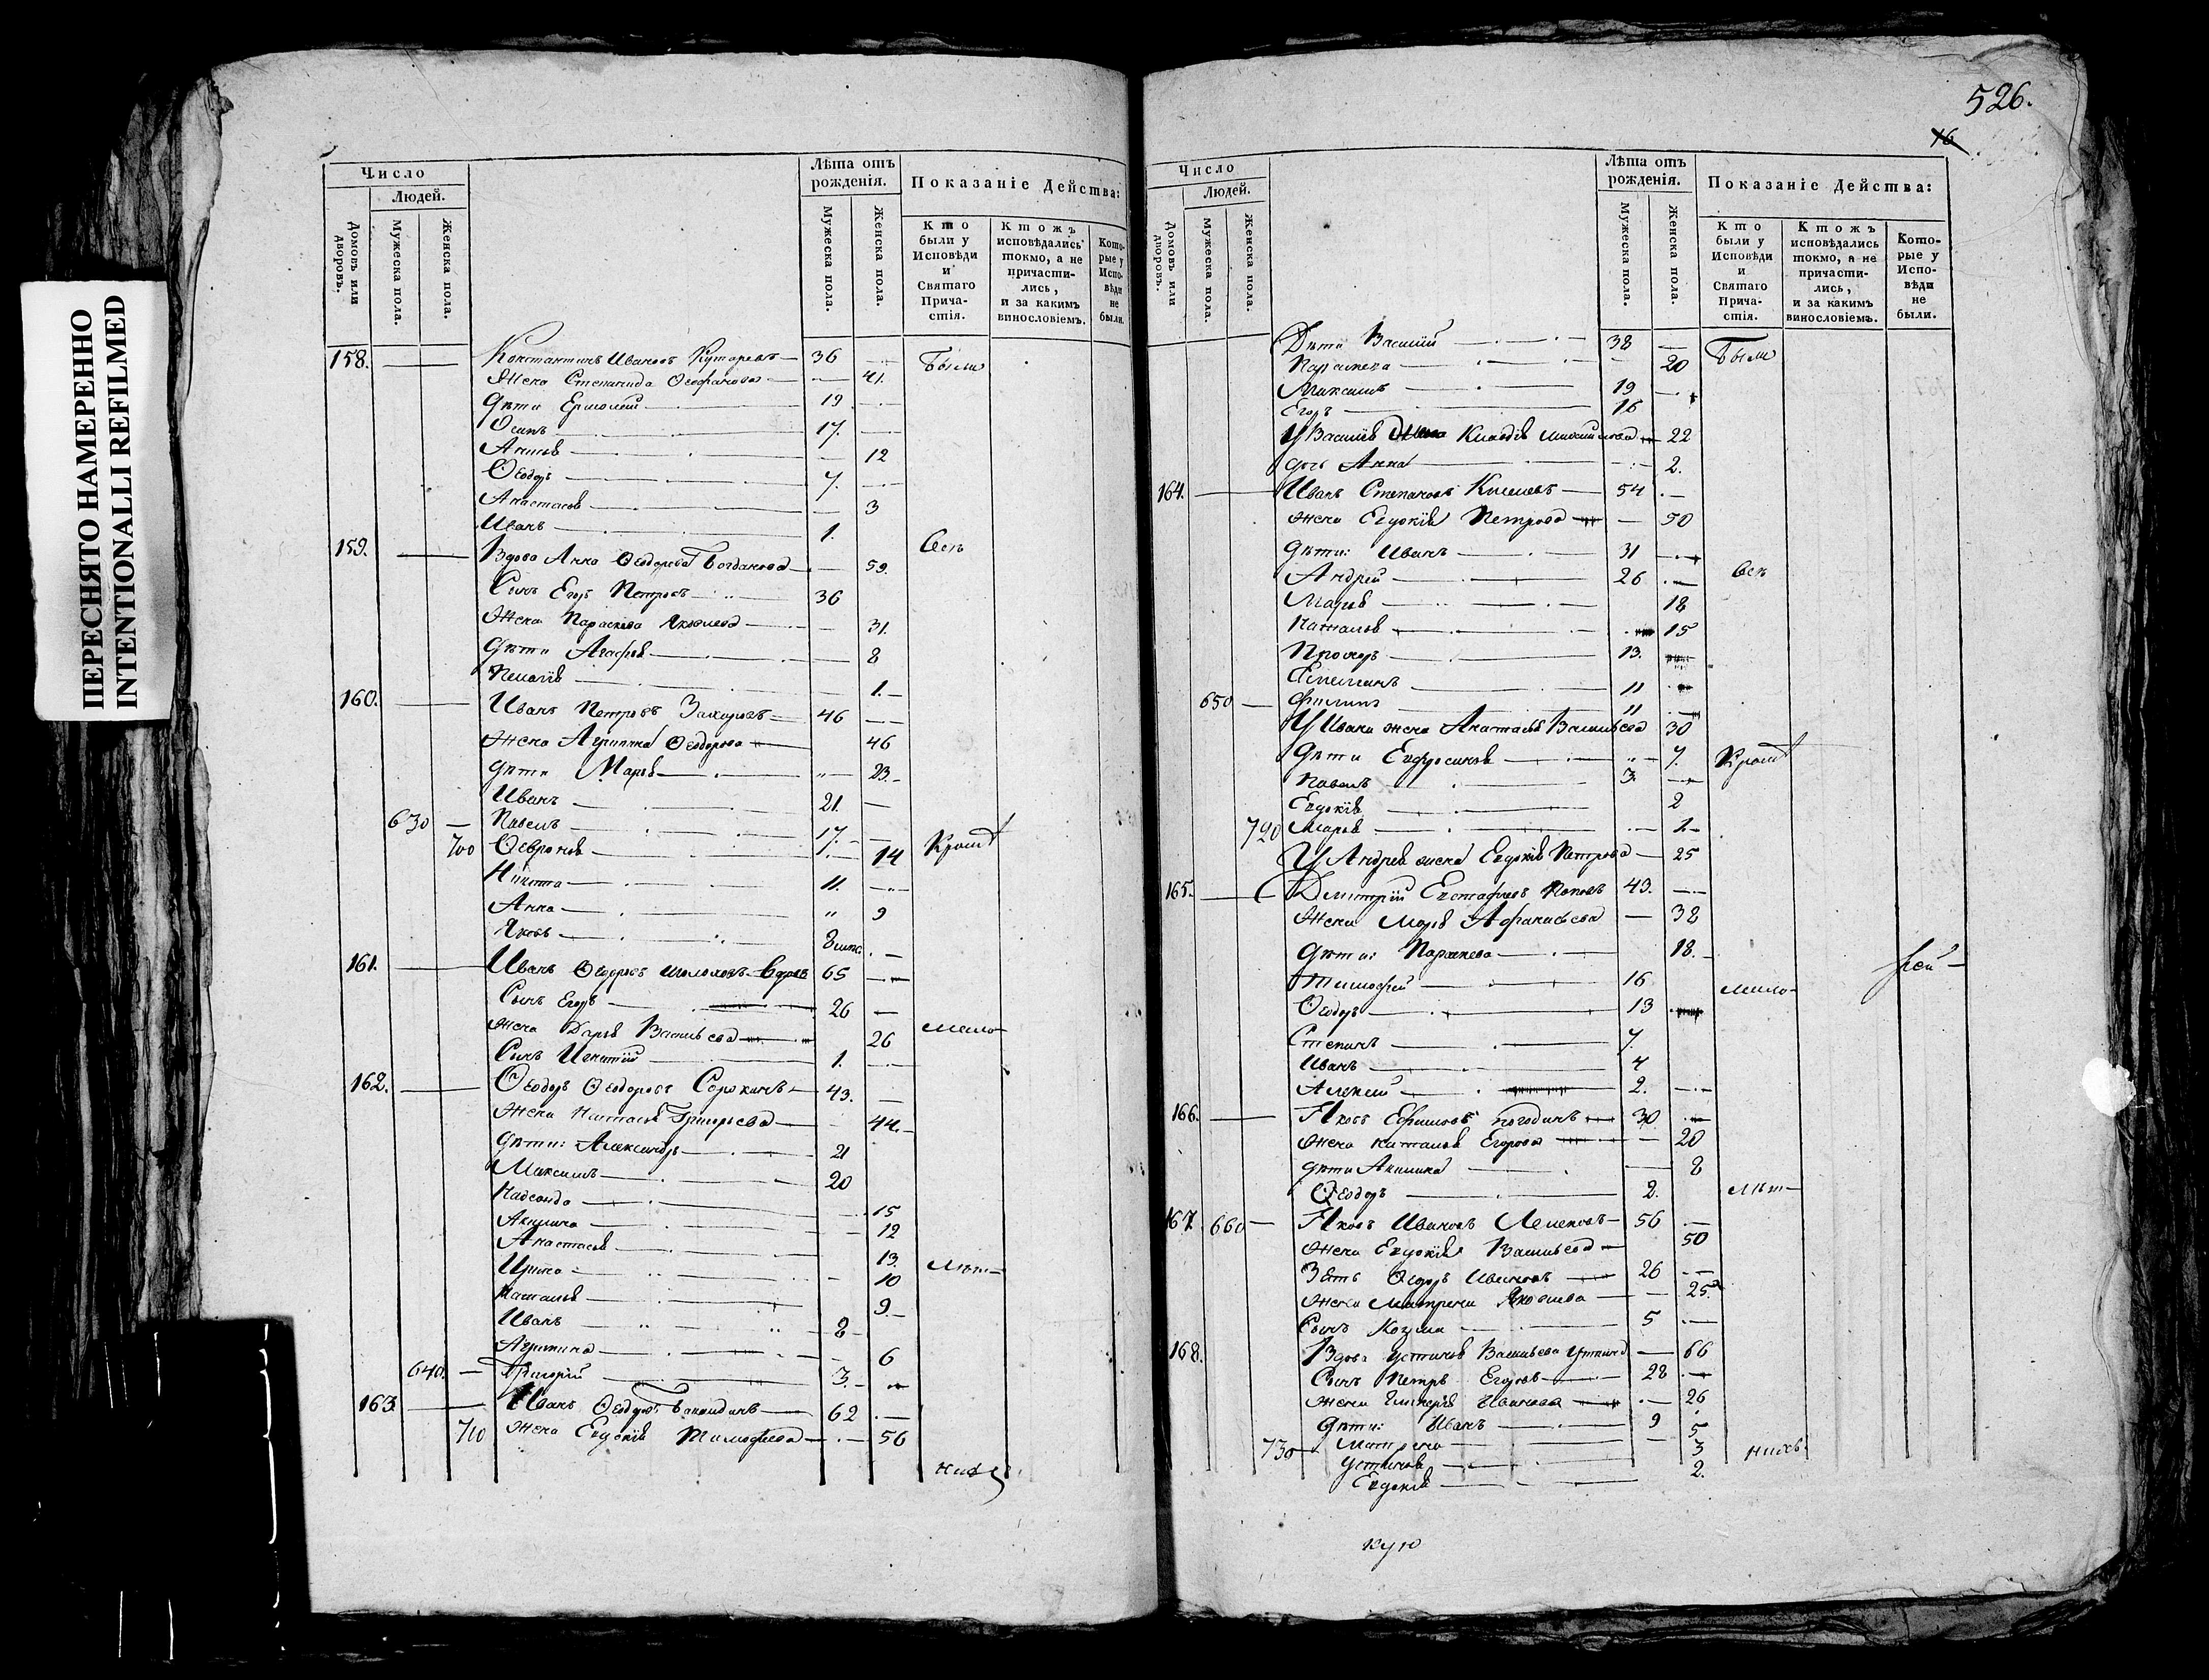 ПЕРЕСНЯТО НАМЕРЕННО
INTENTIONALLI REFILMED
Число
Людей.
Домовъ или дворовъ.
Мужеска пола.
Женска пола.
Лѣта отъ рожденія.
Мужеска пола.
Женска пола.
Показаніе Действа:
Кто были у Исповѣди и Святаго Прича-стія.
Ктожъ исповѣдались токмо, а не причасти-лись, и за какимъ винословіемъ.
Кото-рые у Испо-вѣди не были.
158. Константинъ Ивановъ 36 Были
Жена Степанида Ѳеофанова 41.
Дѣти Ермолай 19
Осипъ 17.
12
Ѳеодоръ 7.
Анастасія 3
Иванъ 1.
159. Вдова Анна Ѳеодорова Богданова 59. Сей
Сынъ Егоръ Петровъ 36
Жена Параскева Яковлева 31.
Дѣти Агафья 8
Пелагія 1.
160. Иванъ Петровъ Захаровъ 46
Жена Агрипина Ѳеодорова 46
Дѣти Марья 23.
Иванъ 21.
630 Павелъ 17.
700 Ѳеврония 14
Никита 11.
Анна 9
Яковъ
161. Иванъ Ѳедоровъ Шолоховъ вдовъ 65
Сынъ Егоръ 26
Жена Дарья Васильева 26
Сынъ Игнатій 1.
162. Ѳеодоръ Ѳеодоровъ Сорокинъ 43.
Жена Наталья Григорьева 44.
Дѣти: Александръ 21
Максимъ 20
15
Акилина 12
Анастасія 13.
Ирина 10
Наталья 9.
Иванъ 8
Агрипина 6
640. Григорій 3.
163. Иванъ Ѳеодоровъ 62
710 Жена Евдокія Тимофеева 56
526.
16
Число
Людей.
Домовъ или дворовъ.
Мужеска пола.
Женска пола.
Лѣта отъ рожденія.
Мужеска пола.
Женска пола.
Показаніе Действа:
Кто были у Исповѣди и Святаго Прича-стія.
Ктожъ исповѣдались токмо, а не причасти-лись, и за какимъ винословіемъ.
Кото-рые у Испо-вѣди не были.
Дѣти Василій 38 Были
Параскева 20
Максимъ 19
Егоръ 16
У Василія Михайлова 22
дочь Анна 2.
164. Иванъ Степановъ Киселевъ 54
Жена Евдокія Петрова 50
Дѣти: Иванъ 31
Андрей 26
Марья 18
Наталья 15
Прохоръ 13.
Емельянъ 11
650 Филипъ 11
У Ивана жена Анастасія Васильева 30
Дѣти Евфросинія 7.
Павелъ 3.
Евдокія 2
720 Марья 1
У Андрея жена Евдокія Петрова 25
165. Дмитрій Евстафіевъ Поповъ 43.
Жена Марья Афанасьева 38
Дѣти: Параскева 18.
Тимофей 16
Ѳеодоръ 13
Степанъ 7.
Иванъ 4
Алексей 2.
166. Яковъ Ефимовъ Погодинъ 30
Жена Наталья Егорова 20
Дѣти Акилина 8
Ѳеодоръ 2.
167. 660 Яковъ Ивановъ 56
Жена Евдокія Васильева 50
Зять Ѳедоръ Ивановъ 26
Жена Матрена Яковлева 25.
Сынъ Козма 5
168. Вдова Устинья Васильева 66
Сынъ Петръ Егоровъ 28
Жена Гликерія Иванова 26
Дѣти: Иванъ 9
730 Матрена 5
Устинья 3
Евдокія 2.
кую